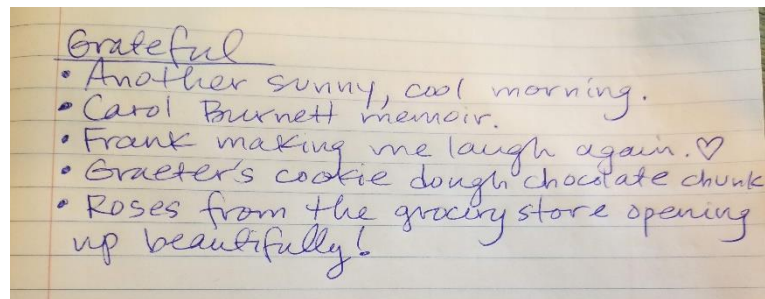 Grateful
• Another sunny, cool morning.
• Carol Burnett memoir.
• Frank making me laugh again. ♡
• Graeter's cookie dough chocolate chunk
• Roses from the grocery store opening
up beautifully!